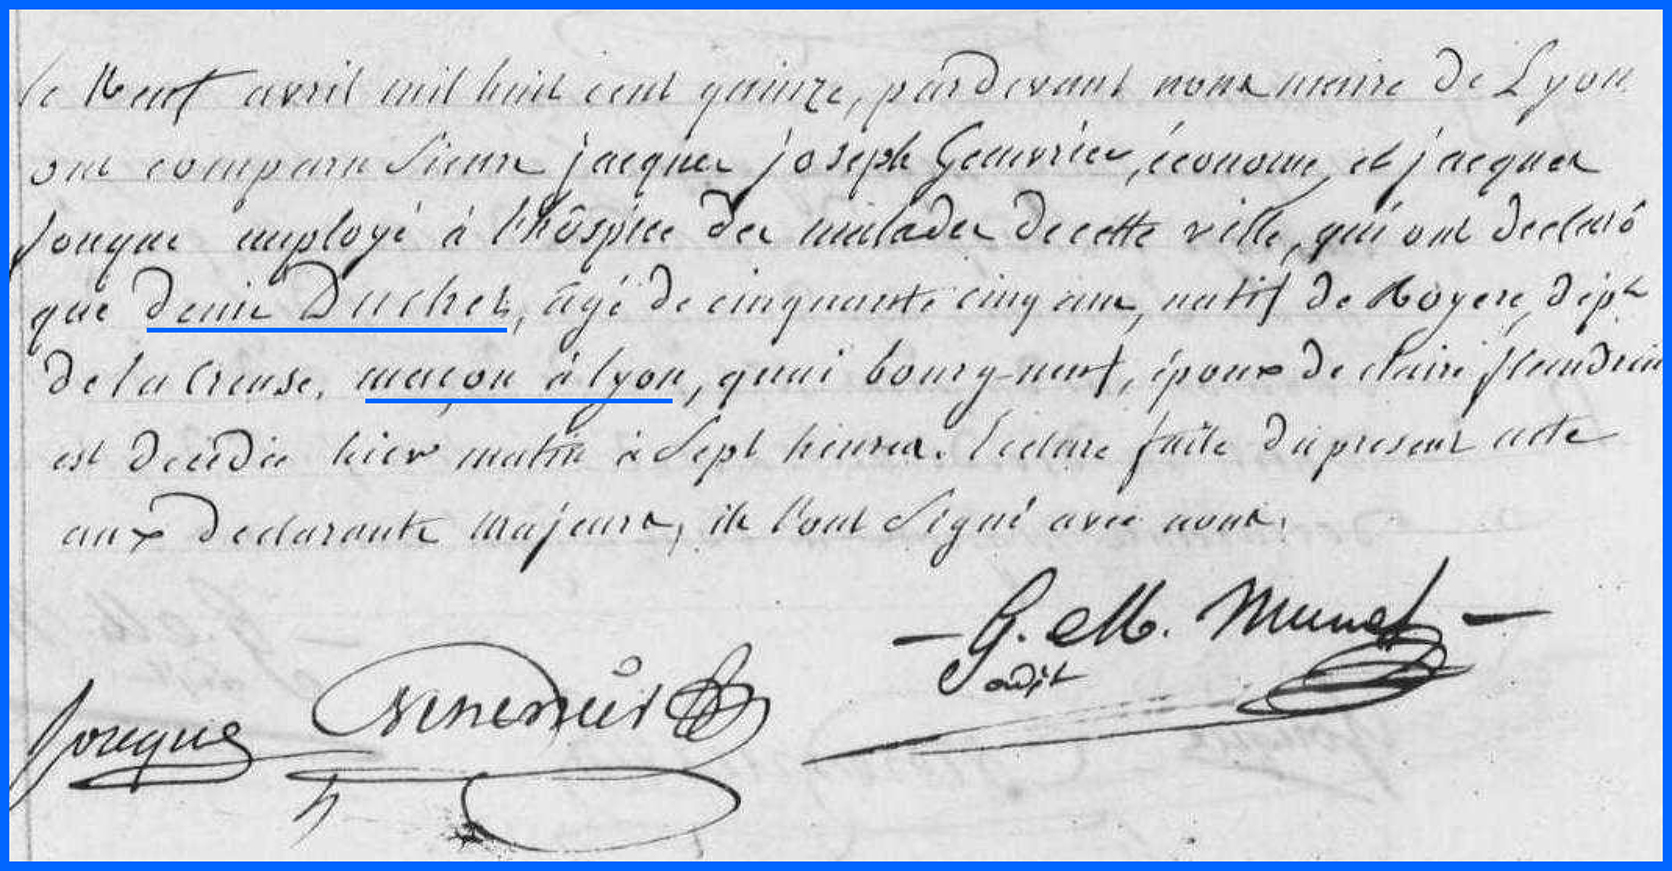 le Neuf avril mil huit cent quinze, pardevant nous maire de Lyon
ont comparu Sieurs jacques joseph Genevrier, économe, et jacques
fouque employé à l'hôspice des malades de cette ville, qui ont declaré
que denis Duchet, âgé de cinquante cinq ans, natif de Royere, dépt
de la Creuse, maçon à lyon, quai bourg-neuf, époux de claire flandrin
est decédée hier matin à Sept heures. Lecture faite du present acte
aux declarants majeurs, ils l'ont Signé avec nous.
G. M. Munet
adjt
fouque Genevrier